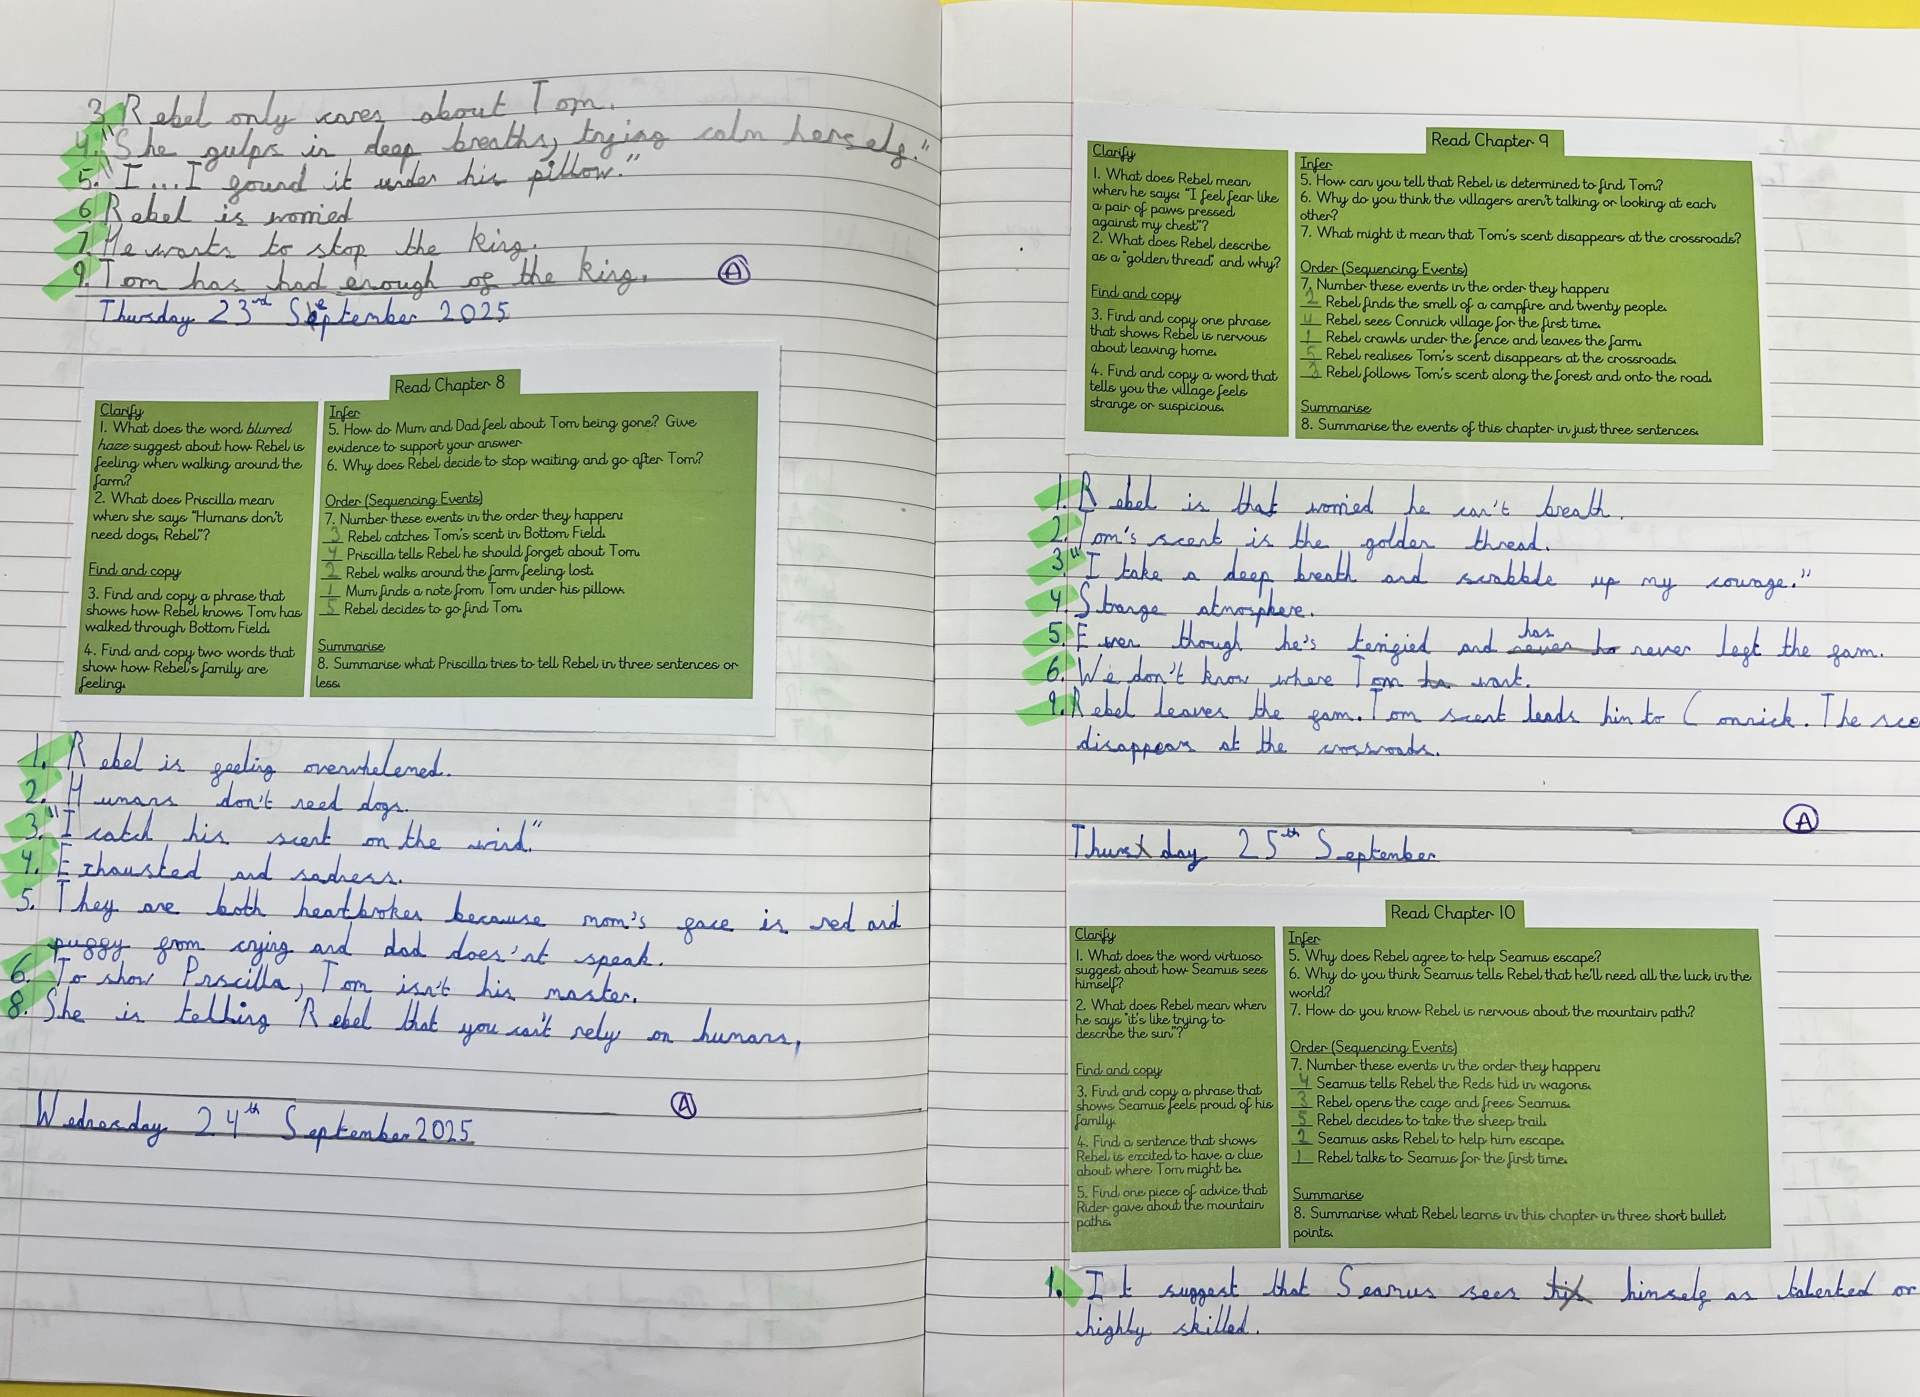 3. Rebel only cares about Tom.
4. "She gulps in deep breaths, trying calm herself."
5. "I...I found it under his pillow."
6. Rebel is worried
7. He wants to stop the king.
9. Tom has had enough of the king.
A
Thursday 23rd September 2025
Read Chapter 8
Clarify
1. What does the word blurred
haze suggest about how Rebel is
feeling when walking around the
farm?
2. What does Priscilla mean
when she says "Humans don't
need dogs, Rebel"?
Find and copy
3. Find and copy a phrase that
shows how Rebel knows Tom has
walked through Bottom Field.
4. Find and copy two words that
show how Rebel's family are
feeling.
Infer
5. How do Mum and Dad feel about Tom being gone? Give
evidence to support your answer
6. Why does Rebel decide to stop waiting and go after Tom?
Order (Sequencing Events)
7. Number these events in the order they happen:
3 Rebel catches Tom's scent in Bottom Field.
4 Priscilla tells Rebel he should forget about Tom.
2 Rebel walks around the farm feeling lost.
1 Mum finds a note from Tom under his pillow.
5 Rebel decides to go find Tom.
Summarise
8. Summarise what Priscilla tries to tell Rebel in three sentences or
less.
1. Rebel is feeling overwhelemed.
2. Humans don't need dogs.
3. "I catch his scent on the wind"
4. Exhausted and sadness.
5. They are both heartbroken because mom's face is red and
puffy from crying and dad does'nt speak.
6. To show Prscilla, Tom isn't his master.
8. She is telling Rebel that you can't rely on humans,
A
Wednesday 24th September 2025
Read Chapter 9
Clarify
1. What does Rebel mean
when he says: "I feel fear like
a pair of paws pressed
against my chest"?
2. What does Rebel describe
as a "golden thread" and why?
Find and copy
3. Find and copy one phrase
that shows Rebel is nervous
about leaving home.
4. Find and copy a word that
tells you the village feels
strange or suspicious.
Infer
5. How can you tell that Rebel is determined to find Tom?
6. Why do you think the villagers aren't talking or looking at each
other?
7. What might it mean that Tom's scent disappears at the crossroads?
Order (Sequencing Events)
7. Number these events in the order they happen:
2 Rebel finds the smell of a campfire and twenty people.
4 Rebel sees Connick village for the first time.
1 Rebel crawls under the fence and leaves the farm.
5 Rebel realises Tom's scent disappears at the crossroads.
3 Rebel follows Tom's scent along the forest and onto the road.
Summarise
8. Summarise the events of this chapter in just three sentences.
1. Rebel is that worried he can't breath.
2. Tom's scent is the golden thread.
3. "I take a deep breath and scrabble up my courage."
4. Strange atmosphere.
5. Even though he's terrified and has never left the farm.
6. We don't know where Tom want.
9. Rebel leaves the farm. Tom scent leads him to Connick. The sce
disappears at the crossroads.
A
Thursday 25th September
Read Chapter 10
Clarify
1. What does the word virtuoso
suggest about how Seamus sees
himself?
2. What does Rebel mean when
he says "it's like trying to
describe the sun"?
Find and copy
3. Find and copy a phrase that
shows Seamus feels proud of his
family.
4. Find a sentence that shows
Rebel is excited to have a clue
about where Tom might be.
5. Find one piece of advice that
Rider gave about the mountain
paths.
Infer
5. Why does Rebel agree to help Seamus escape?
6. Why do you think Seamus tells Rebel that he'll need all the luck in the
world?
7. How do you know Rebel is nervous about the mountain path?
Order (Sequencing Events)
7. Number these events in the order they happen:
4 Seamus tells Rebel the Reds hid in wagons.
3 Rebel opens the cage and frees Seamus.
5 Rebel decides to take the sheep trail.
2 Seamus asks Rebel to help him escape.
1 Rebel talks to Seamus for the first time.
Summarise
8. Summarise what Rebel learns in this chapter in three short bullet
points.
1. It suggest that Seamus sees himself as talented or
highly skilled.